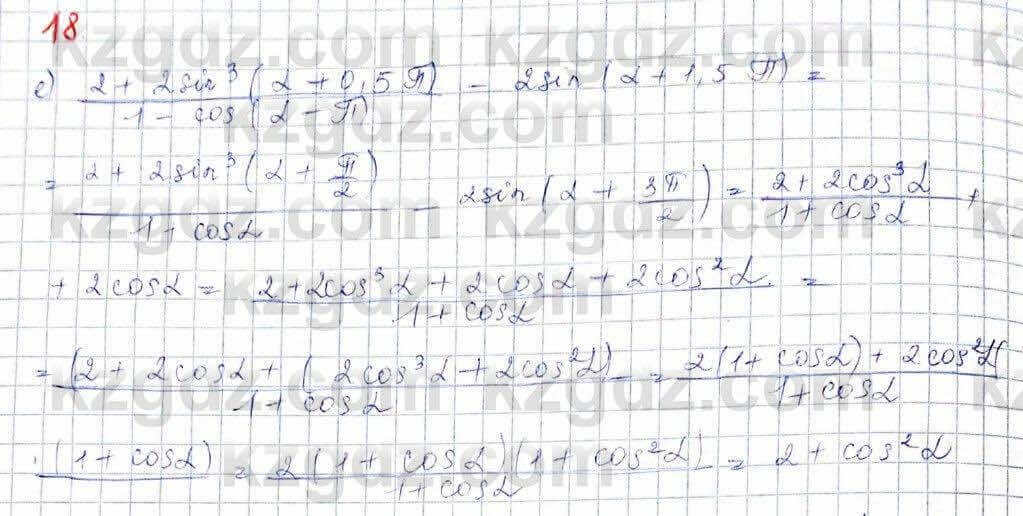 18
kzgdz.com kzgdz.com
e) (2 + 2sin³(α + 0,5π))/(1 - cos(α - π)) - 2sin(α + 1,5π) =
= (2 + 2sin³(α + π/2))/(1 + cosα) - 2sin(α + 3π/2) = (2 + 2cos³α)/(1 + cosα) +
+ 2cosα = (2 + 2cos³α + 2cosα + 2cos²α)/(1 + cosα) =
= ((2 + 2cosα + (2cos³α + 2cos²α))/(1 + cosα) = (2(1 + cosα) + 2cos²α(
·(1 + cosα) = (2(1 + cosα)(1 + cos²α))/(1 + cosα) = 2 + cos²α